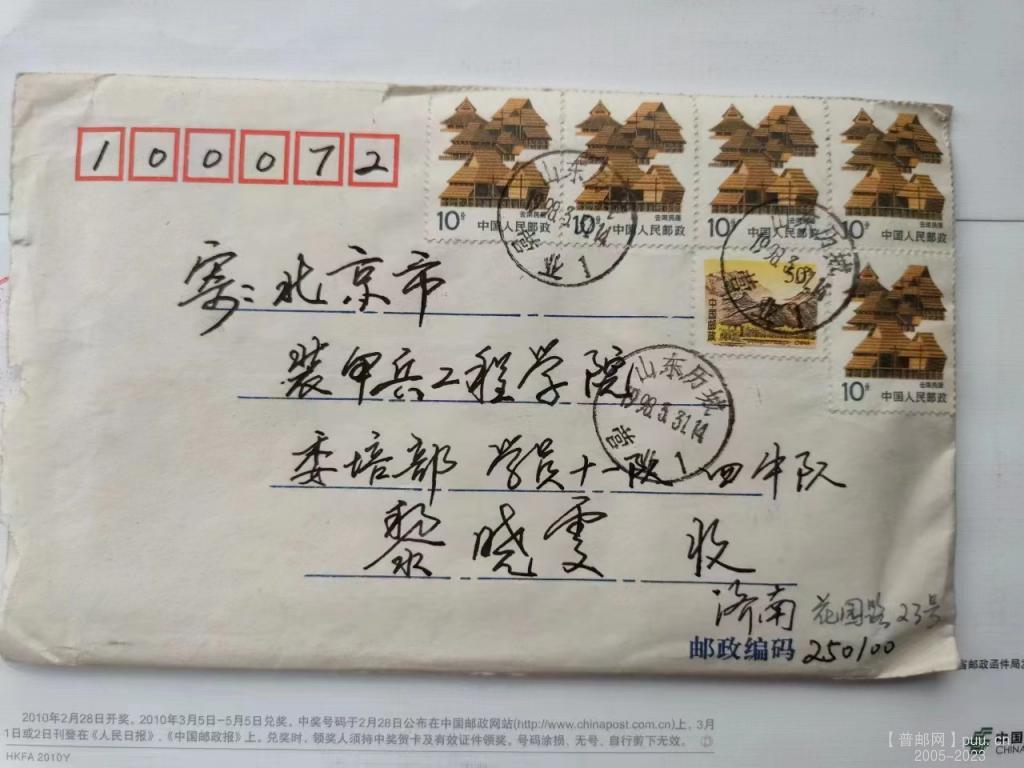 100072
10分 云南民居 中国人民邮政
10分 云南民居 中国人民邮政
10分 云南民居 中国人民邮政
10分 云南民居 中国人民邮政
山东
1998.3.31.14
营 1
山东历城
1998.3.31.14
营 1
50分
中国邮政
CHINA
10分 云南民居 中国人民邮政
寄：北京市
装甲兵工程学院
山东历城
1998.3.31.14
营 1
委培部 学员十一队 四中队
黎晓雯 收
济南 花园路23号
邮政编码 250100
省邮政函件局
2010年2月28日开奖。2010年3月5日-5月5日兑奖。中奖号码于2月28日公布在中国邮政网站(http://www.chinapost.com.cn)上，3月
1日或2日刊登在《人民日报》、《中国邮政报》上。兑奖时，领奖人须持中奖贺卡及有效证件领奖。号码涂损、无号、自行剪下无效。
HKFA 2010Y
中国
CHINA
【普邮网】puu.cn
2005-2023